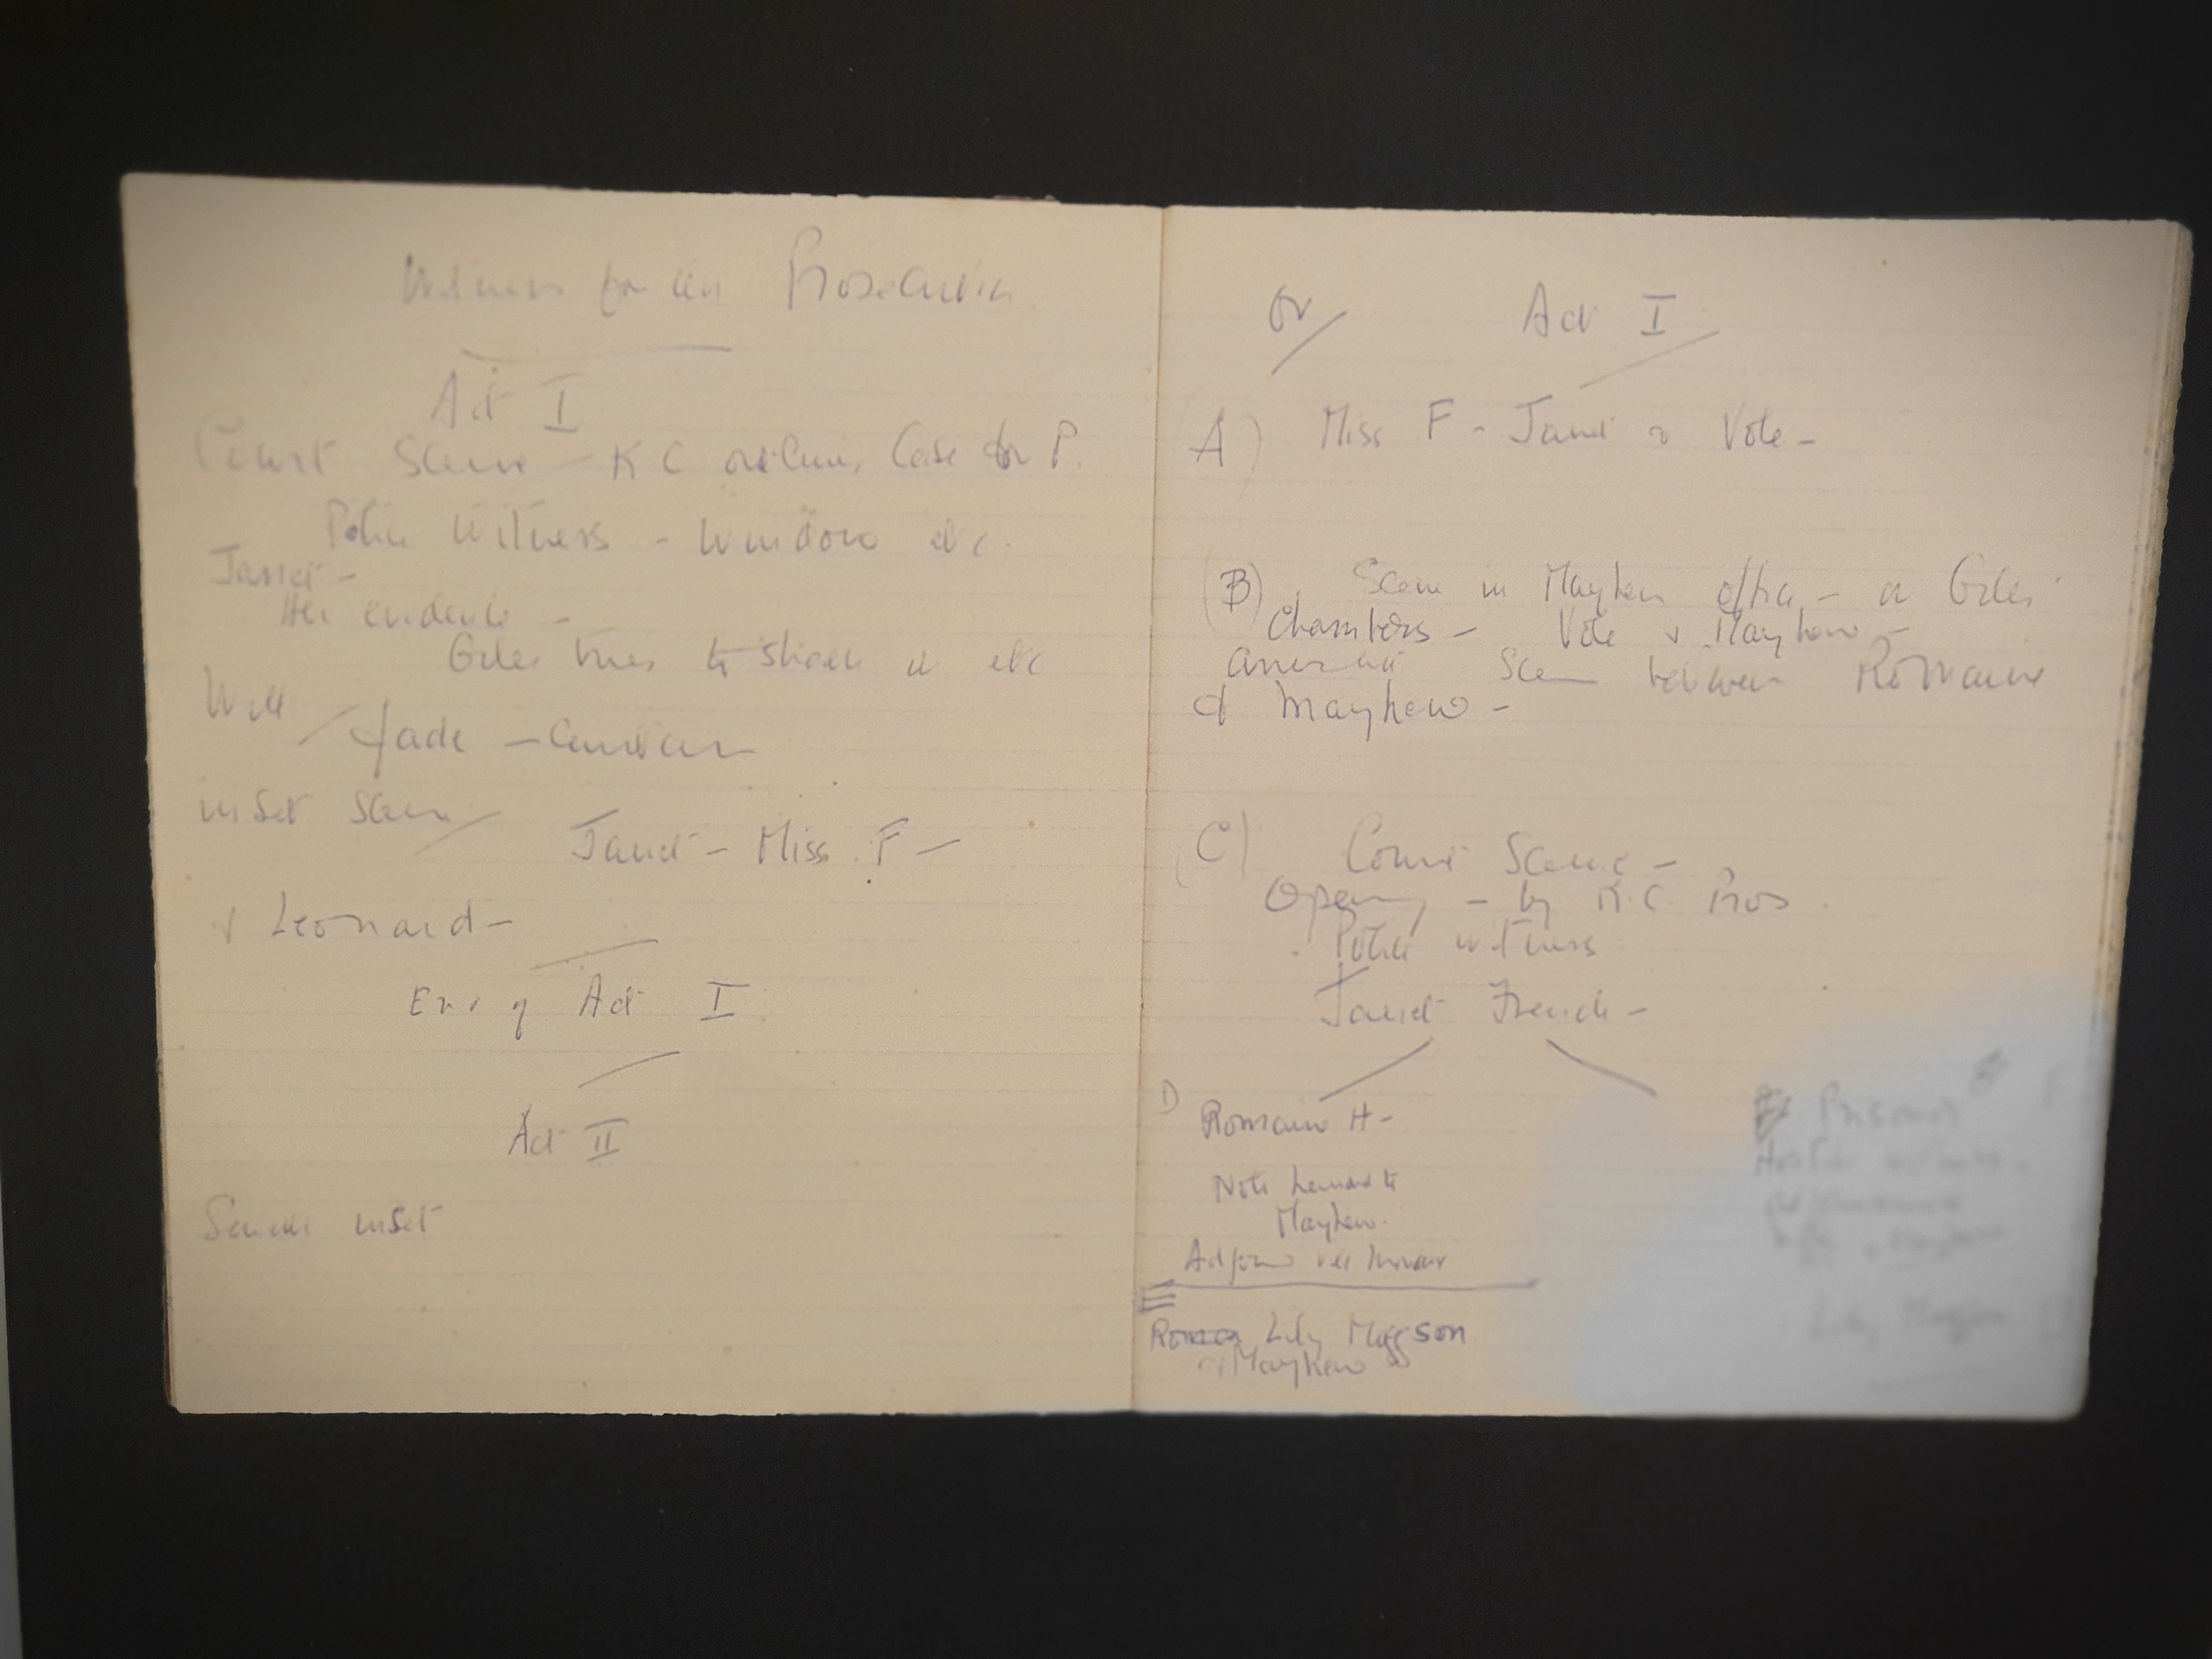 Witness for the Prosecution
Act I
Court Scene - K C outlines Case for P.
Police Witness - Window etc.
Janet -
Her evidence -
Giles tries to shake it etc
Will
fade - Curtain
inset scene
Janet - Miss F -
& Leonard -
End of Act I
Act II
Scene inset
Or
Act I
(A) Miss F - Janet & Vole -
(B) Scene in Mayhew office - or Giles
Chambers - Vole & Mayhew -
Scene between Romaine
& Mayhew -
(C) Court Scene -
Opening - by K.C. Pros.
Police witness
Janet French -
D
Romaine H -
Note Leonard to
Mayhew.
Adjourn
Lily Moggson
Mayhew
Prisoner
Lily